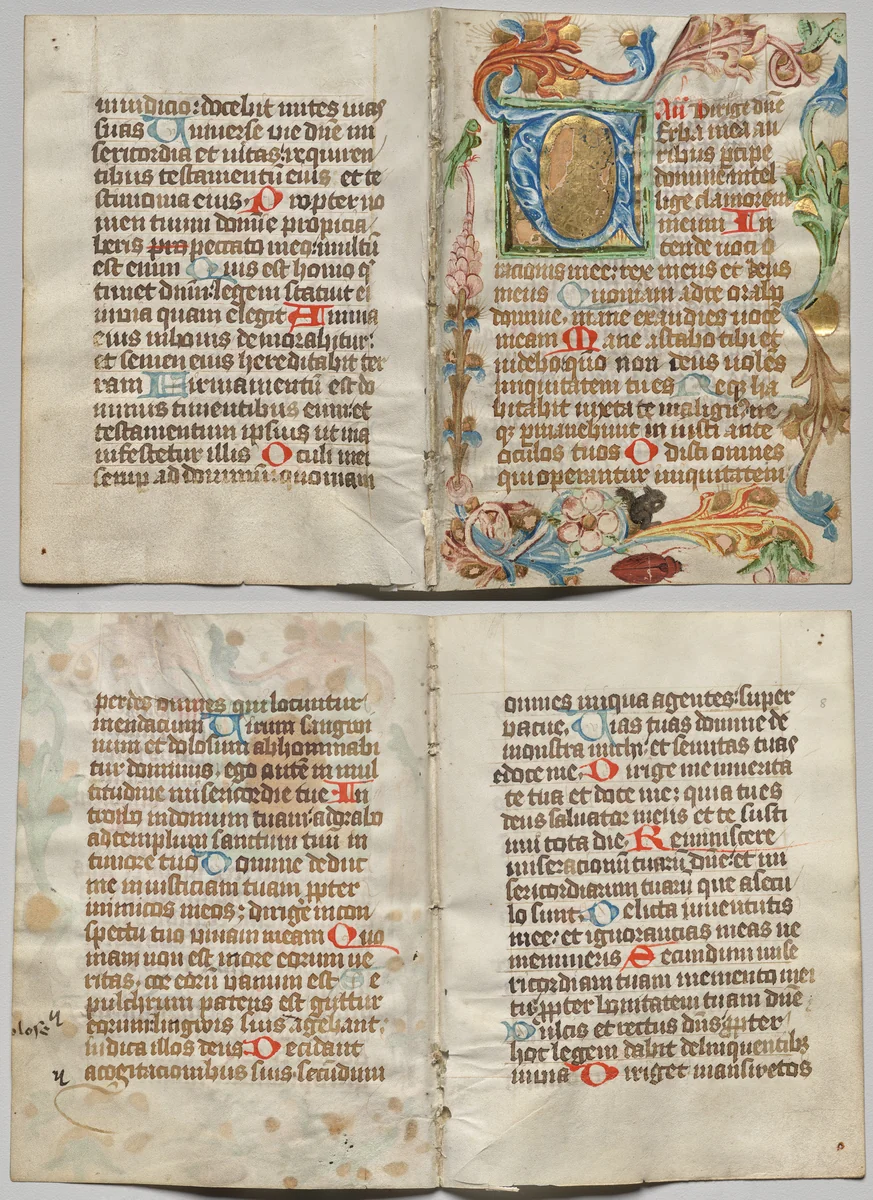 in iudicio: docebit mites vias
suas Universe vie dñe mi
sericordia et vitas: requiren
tibus testamentū eius et te
stimonia eius. Propter no
men tuum domine propicia
beris pro peccato meo: multū
est enim Quis est homo q
timet dnm: legem statuit ei
in via quam elegit Anima
eius in bonis demorabitur:
et semen eius hereditabit ter
ram Firmamentū est do
minus timentibus eum: et
testamentum ipsius ut ma
nifestetur illis Oculi mei
semp ad dominū: quoniam
Añ Dirige dñe
Verba mea au
ribus pcipe
domine intel
lige clamorem
meum In
tende voci o
racionis mee: rex meus et deus
meus Quoniam ad te orabo
domine, mane exaudies vocē
meam Mane astabo tibi et
videbo: quo non deus volēs
iniquitatem tu es Neq; ha
bitabit iuxta te malignꝰ, ne
q; pmanebunt in iusti ante
oculos tuos Odisti omnes
qui operantur iniquitatem
perdes omnes qui locuntur
mendacium Virum sangwi
num et dolosum abhominabi
tur dominus, ego autē in mul
titudine misericordie tue In
troibo in domum tuam: adorabo
ad templum sanctum tuū in
timore tuo Domine deduc
me in iusticiam tuam ppter
inimicos meos; dirige in con
spectu tuo vinam meam Quo
niam non est in ore eorum ve
ritas, cor eorū vanum est Se
pulchrum patens est guttur
eorum: lingwis suis agebant,
iudica illos deus Decidant
a cogitacionibus suis. secūdum
omnes iniqua agentes: super
vacue, Vias tuas domine de
monstra michi: et semitas tuas
edoce me, Dirige me in verita
te tua et doce me: quia tu es
deus salvator meus et te susti
nui tota die, Reminiscere
miseracionū tuarū dñe: et mi
sericordiarum tuarū que a secu
lo sunt, Delicta iuventutis
mee: et ignorancias meas ne
memineris Secundum mise
ricordiam tuam memento mei
tu: ppter bonitatem tuam dñe
Dulcis et rectus dñs: ppter
hoc legem dabit delinquentibꝫ
in via Diriget mansuetos
8